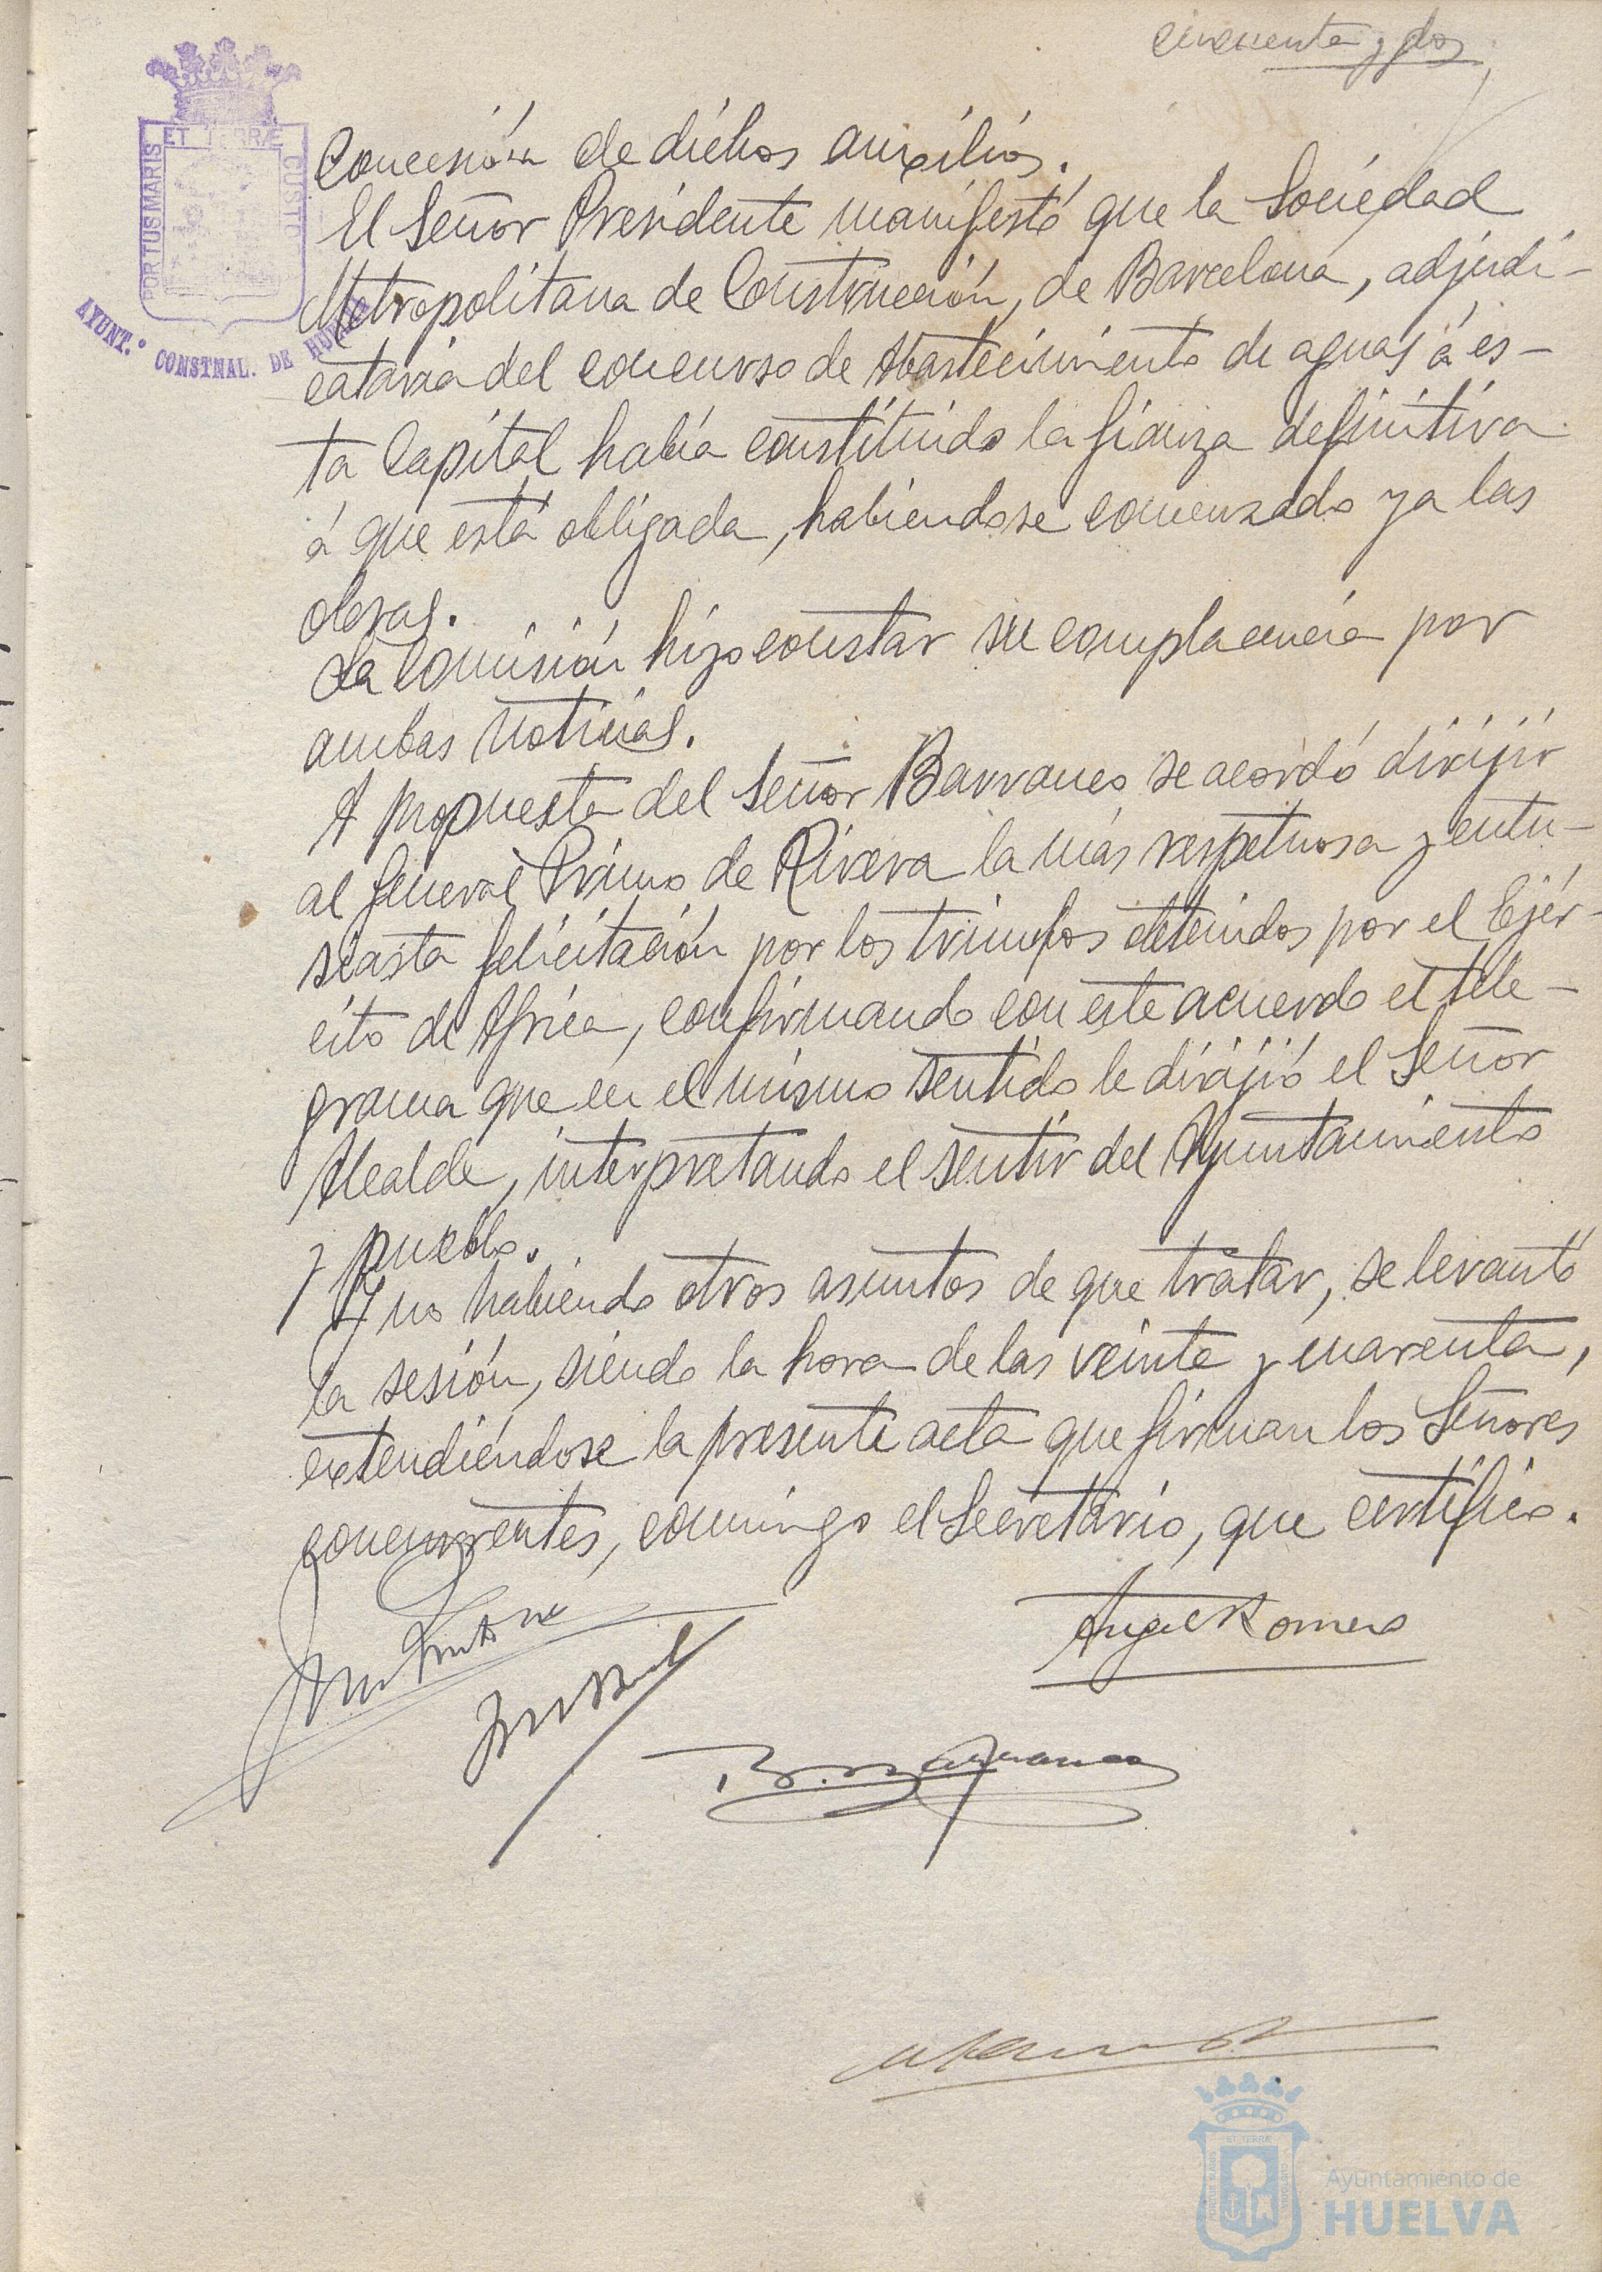 cincuenta y dos
ET TERRÆ
PORTUS MARIS
CUSTO
AYUNT.º CONSTNAL. DE HUELVA
Concesión de dichos auxilios.
El Señor Presidente manifestó que la Sociedad
Metropolitana de Construcción, de Barcelona, adjudi-
cataria del concurso de Abastecimiento de aguas á es-
ta Capital había constituido la fianza definitiva
á que está obligada, habiendose comenzado ya las
obras.
La Comisión hizo constar su complacencia por
ambas noticias.
A propuesta del Señor Barranco se acordó dirijir
al General Primo de Rivera la más respetuosa y entu-
siasta felicitación por los triunfos obtenidos por el Ejér-
cito de Africa, confirmando con este acuerdo el tele-
grama que en el mismo sentido le dirijió el Señor
Alcalde, interpretando el sentir del Ayuntamiento
y pueblo.
Y no habiendo otros asuntos de que tratar, se levantó
la sesión, siendo la hora de las veinte y cuarenta,
extendiéndose la presente acta que firman los Señores
concurrentes, conmigo el Secretario, que certifico.
Angel Romero
B. Barranco
Ayuntamiento de
HUELVA